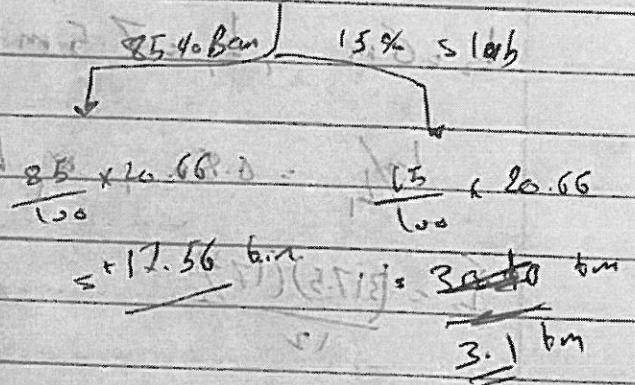 85% Bam 15% slab
85/100 × 20.66 15/100 × 20.66
= 17.56 b.m = bm
3.1 bm